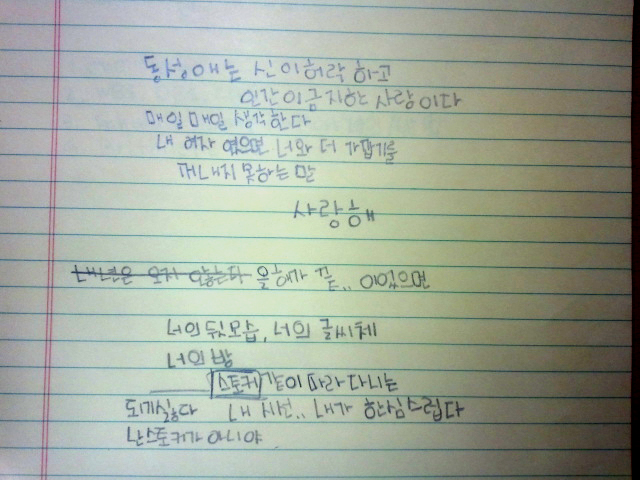 동성애는 신이허락 하고
인간이 금지한 사랑이다
매일매일 생각한다
내 여자 였으면 너와 더 가깝기를
꺼내지 못하는 말
사랑해
내년은 오지 않는다 올해가 끝.. 이었으면
너의 뒷모습, 너의 글씨체
너의 방
스토커 같이 따라 다니는
되기싫다 내 시선.. 내가 한심스럽다
난스토커가 아니야